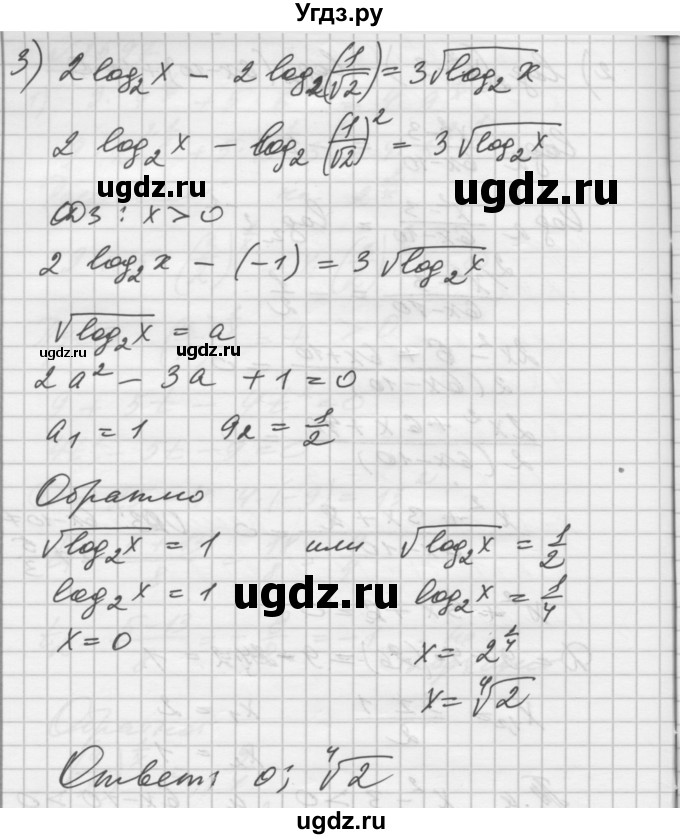 Угдз.ру
3) 2 log₂x − 2 log₂(1/√2) = 3√(log₂x)
2 log₂x − log₂(1/√2)² = 3√(log₂x)
ugdz.ru ugdz.ru
ОДЗ: x > 0
2 log₂x − (−1) = 3√(log₂x)
√(log₂x) = a
ugdz.ru ugdz.ru
2a² − 3a + 1 = 0
a₁ = 1 a₂ = 1/2
Обратно
√(log₂x) = 1 или √(log₂x) = 1/2
log₂x = 1 ugdz.ru log₂x = 1/4
x = 0 x = 2^(1/4)
x = ⁴√2
Ответ: 0; ⁴√2
ugdz.ru ugdz.ru